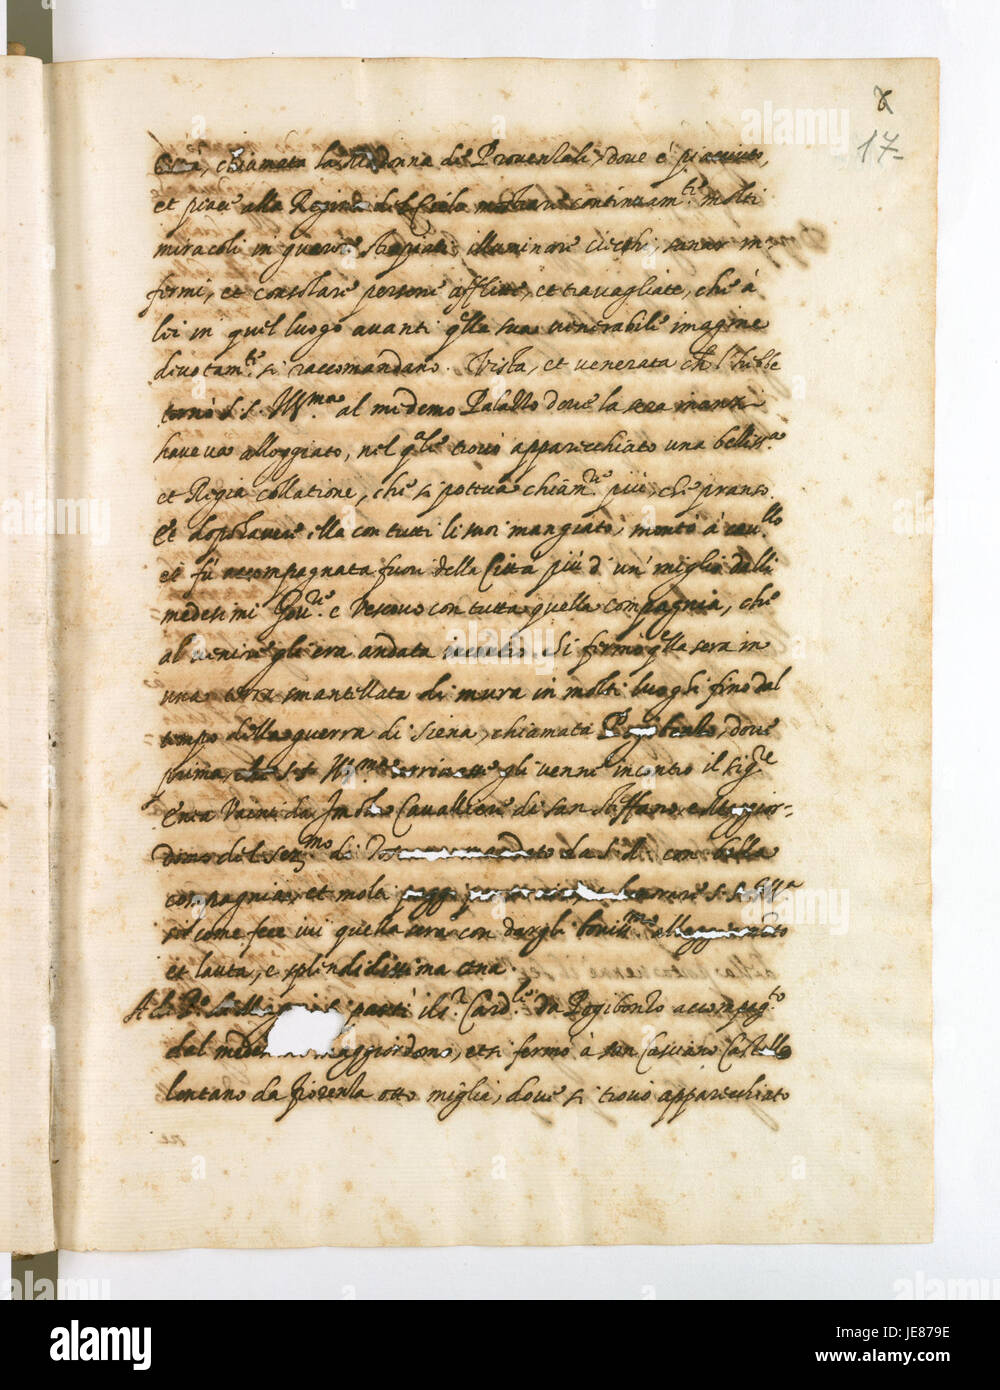 8
17
Città, chiamata la Madonna di Provenzali, dove è piaciuto,
et piace alla Regina del Cielo mostrare continuam.te molti
miracoli in guarire stroppiati, illuminare ciechi, sanar in=
fermi, et consolare persone afflitte, et travagliate, che à
lei in quel luogo avanti q.lla sua venerabile imagine
divotam.te si raccomandano. Vista, et venerata ch l'hebbe
tornò S. S. Ill.ma al medemo Palazzo dove la sera inanzi
haveva alloggiato, nel q.le trovò apparecchiato una belliss.a
et Regia collatione, che si potteva chiam.re più, che pranso.
Et dop'havere ella con tutti li suoi mangiato, montò à cavallo
et fù accompagnata fuori della Città più d'un' miglio dalli
medesimi Gov.re e Vescovo con tutta quella compagnia, che
al venire gli era andata incontro. Si fermò q.lla sera in
una terra smantellata di mura in molti luoghi fino dal
tempo della guerra di Siena, chiamata Pogibonzo, dove
prima, che S. S. Ill.ma arrivasse gli venne incontro il Sig.re
Enea Vaini da Imola Cavalliere di san Steffano, e Maggior=
domo del Ser.mo di mandato da S. A. con bella
compagnia, et S. S. Ill.ma
sicome fece ivi quella sera con dargli boniss.mo alloggiamento
et lauta, e splendidissima cena.
Alli partì il S.r Card.le da Pogibonzo accompag.to
dal medesimo Maggiordomo, et si fermò à san Casciano Castello
lontano da Fiorenza otto miglia, dove si trovò apparecchiato
alamy
Image ID: JE879E
www.alamy.com